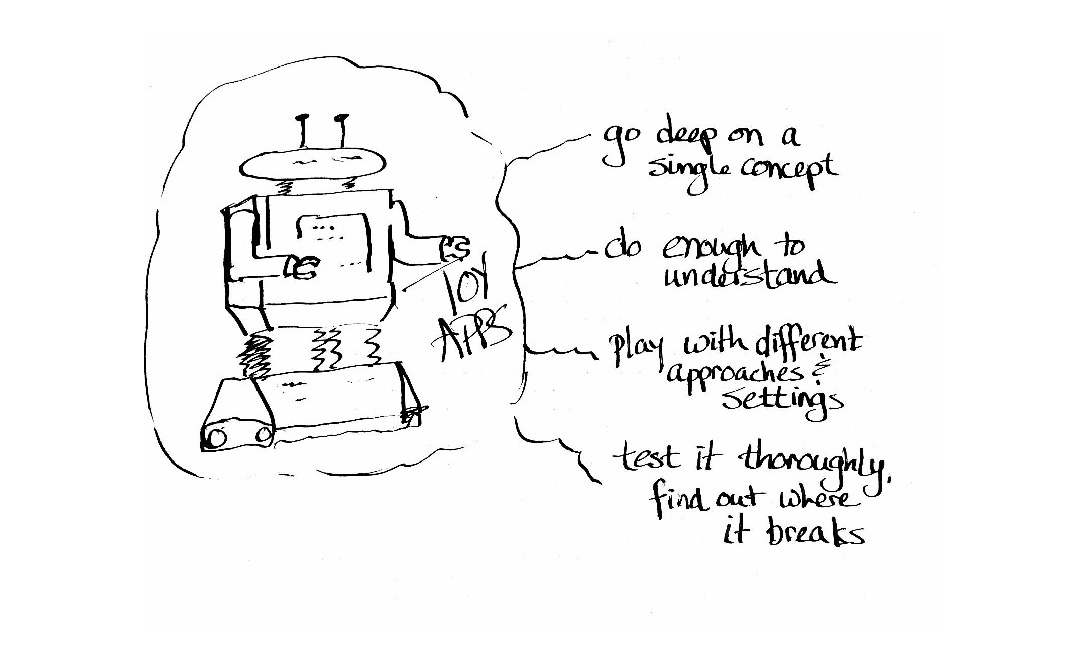 TOY
APPS
go deep on a
single concept
do enough to
understand
play with different
approaches &
settings
test it thoroughly,
find out where
it breaks